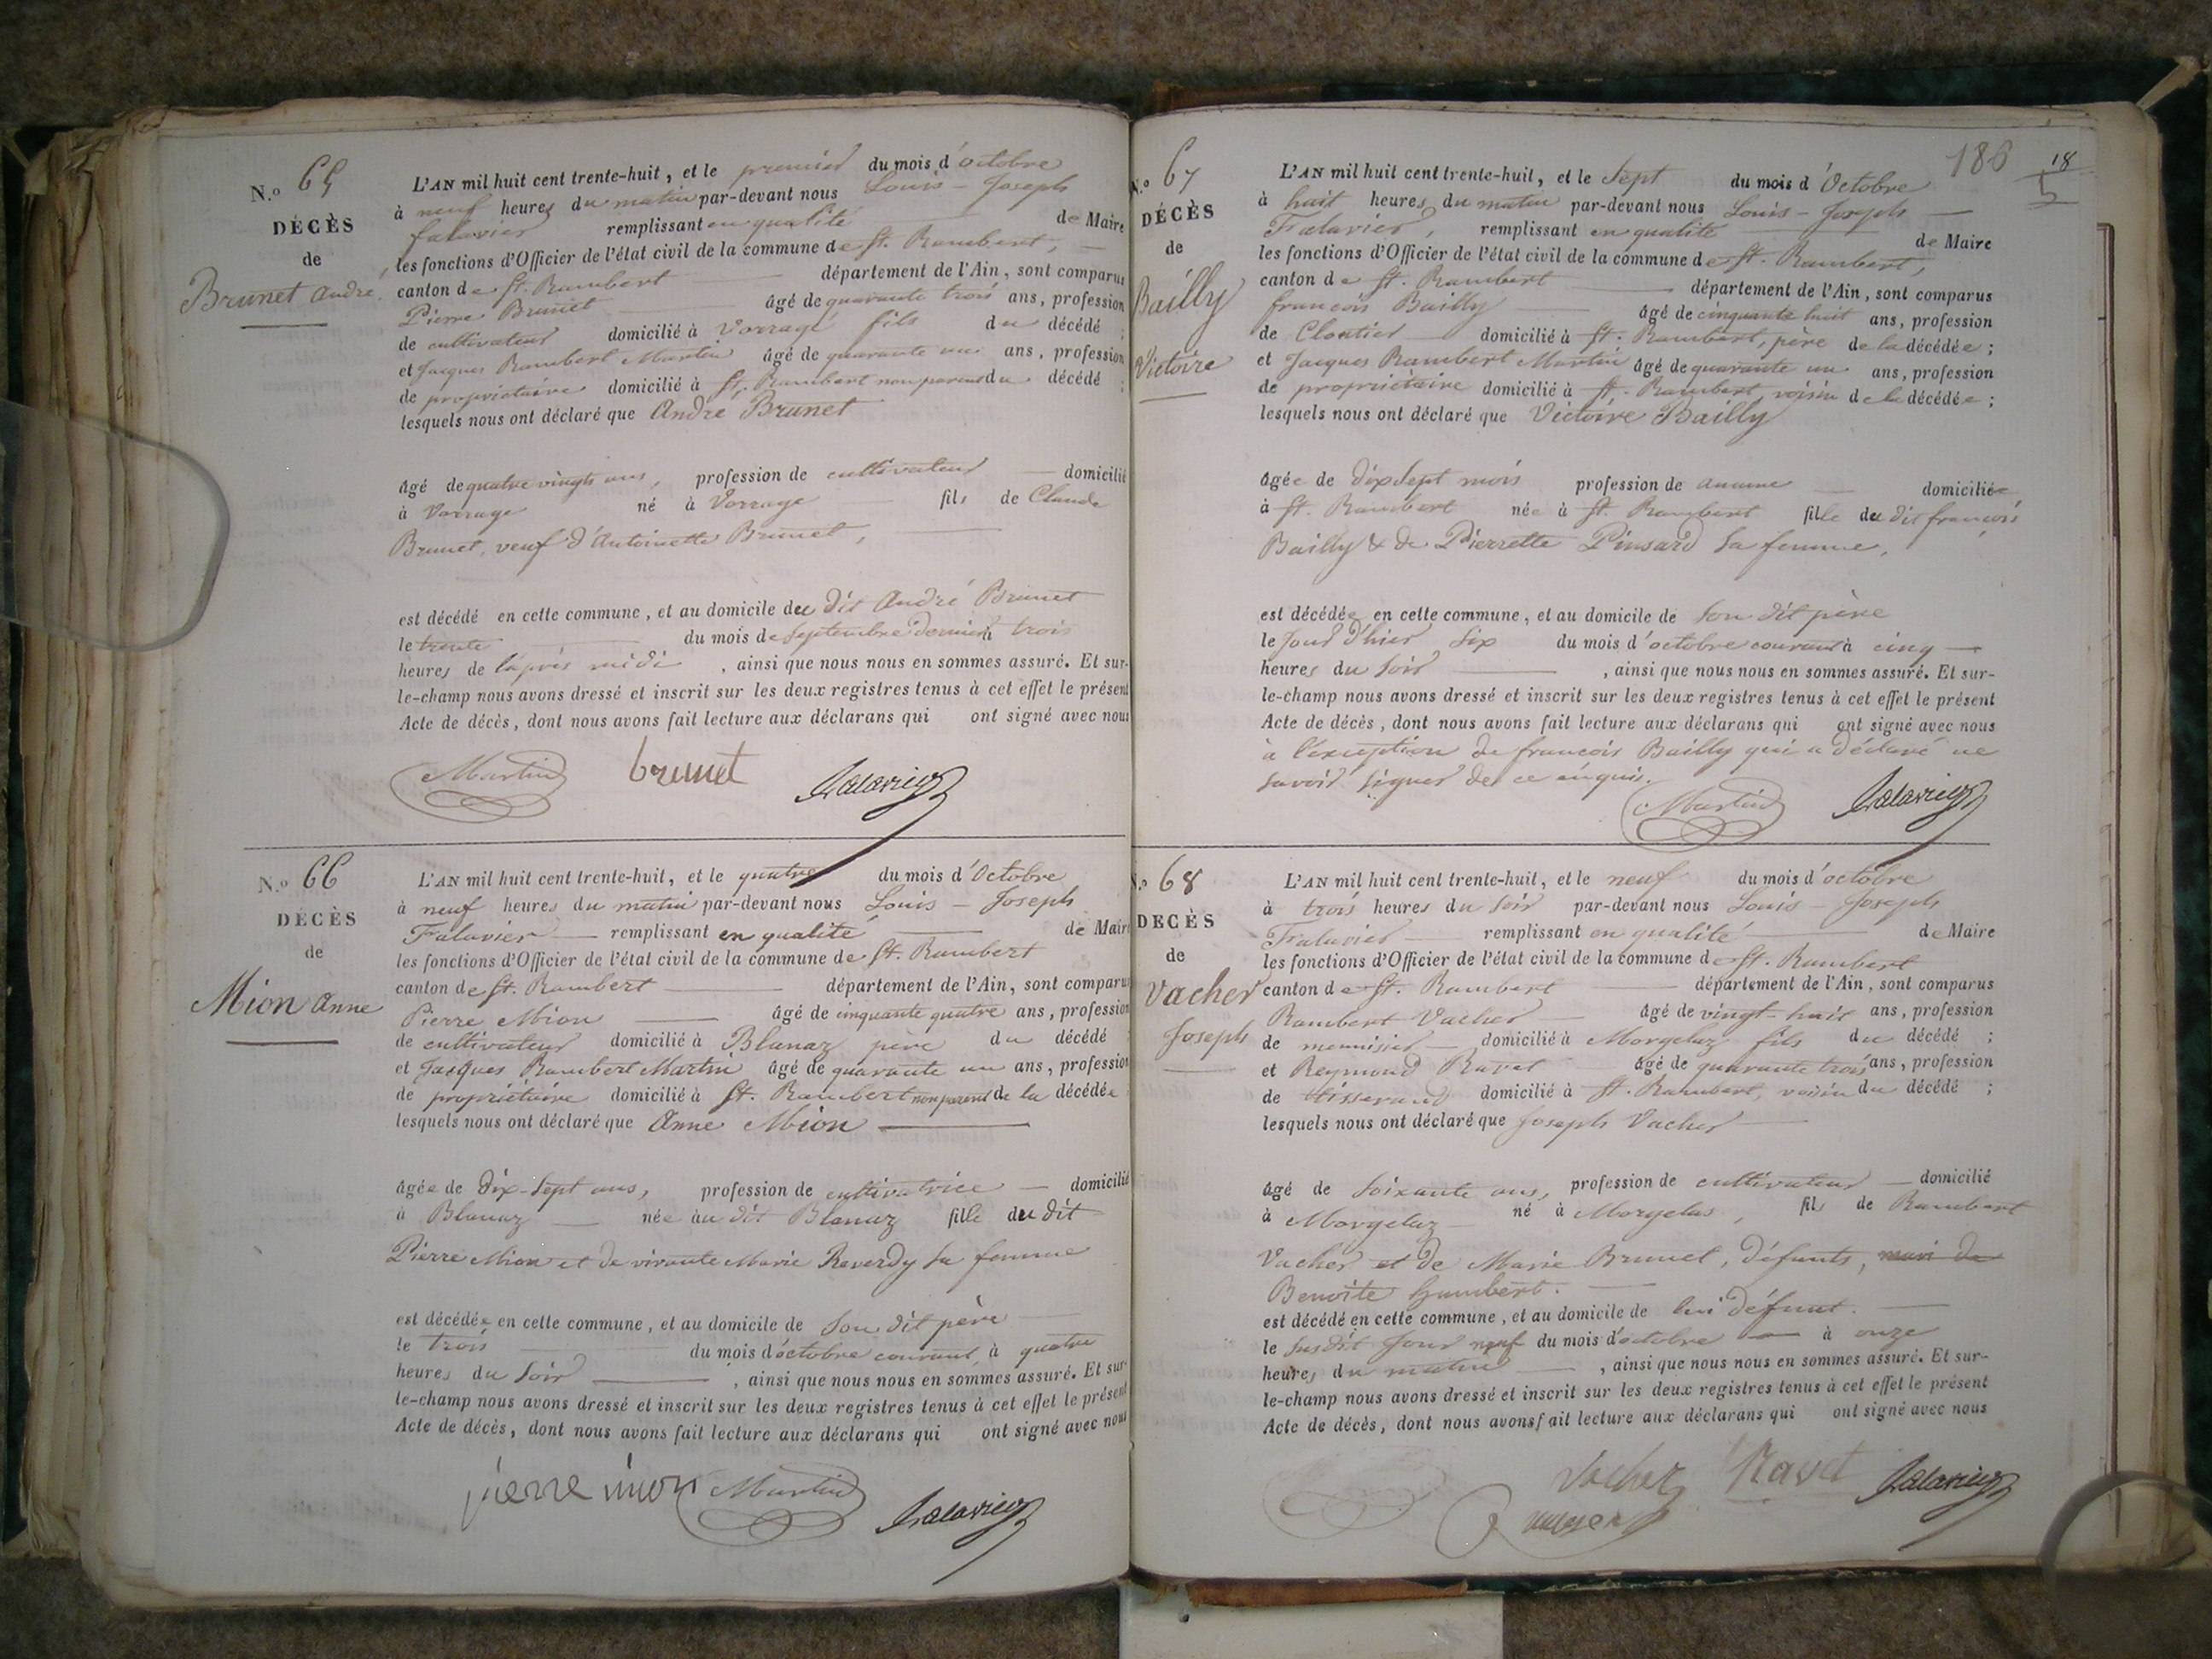 N.o 65
DÉCÈS
de
Brunet André
L'AN mil huit cent trente-huit, et le premier du mois d'octobre
à neuf heures du matin par-devant nous Louis - Joseph
falavier remplissant en qualité de Maire
les fonctions d'Officier de l'état civil de la commune de St. Rambert,
canton de St. Rambert département de l'Ain, sont comparus
Pierre Brunet âgé de quarante trois ans, profession
de cultivateur domicilié à Vorrage fils du décédé ;
et Jacques Rambert Martin âgé de quarante un ans, profession
de propriétaire domicilié à St. Rambert non parent du décédé ;
lesquels nous ont déclaré que André Brunet
âgé de quatre vingts ans, profession de cultivateur domicilié
à Vorrage né à Vorrage fils de Claude
Brunet, veuf d'Antoinette Brunet,
est décédé en cette commune, et au domicile du dit André Brunet
le trente du mois de Septembre dernier à trois
heures de l'après midi, ainsi que nous nous en sommes assuré. Et sur-
le-champ nous avons dressé et inscrit sur les deux registres tenus à cet effet le présent
Acte de décès, dont nous avons fait lecture aux déclarans qui ont signé avec nous
Martin brunet Falavier
N.o 66
DÉCÈS
de
Mion Anne
L'AN mil huit cent trente-huit, et le quatre du mois d'Octobre
à neuf heures du matin par-devant nous Louis - Joseph
Falavier remplissant en qualité de Maire
les fonctions d'Officier de l'état civil de la commune de St. Rambert
canton de St. Rambert département de l'Ain, sont comparus
Pierre Mion âgé de cinquante quatre ans, profession
de cultivateur domicilié à Blanaz père du décédé ;
et Jacques Rambert Martin âgé de quarante un ans, profession
de propriétaire domicilié à St. Rambert non parent de la décédée
lesquels nous ont déclaré que Anne Mion
âgée de dix-sept ans, profession de cultivatrice domicilié
à Blanaz née au dit Blanaz fille du dit
Pierre Mion et de vivante Marie Reverdy sa femme
est décédée en cette commune, et au domicile de Son dit père
le trois du mois d'octobre courant, à quatre
heures du soir, ainsi que nous nous en sommes assuré. Et sur-
le-champ nous avons dressé et inscrit sur les deux registres tenus à cet effet le présent
Acte de décès, dont nous avons fait lecture aux déclarans qui ont signé avec nous
pierre mion Martin Falavier
186
18
5
N.o 67
DÉCÈS
de
Bailly
Victoire
L'AN mil huit cent trente-huit, et le Sept du mois d'Octobre
à huit heures du matin par-devant nous Louis - Joseph
Falavier, remplissant en qualité de Maire
les fonctions d'Officier de l'état civil de la commune de St. Rambert,
canton de St. Rambert département de l'Ain, sont comparus
françois Bailly âgé de cinquante huit ans, profession
de Cloutier domicilié à St. Rambert, père de la décédée ;
et Jacques Rambert Martin âgé de quarante un ans, profession
de propriétaire domicilié à St. Rambert, voisin de la décédée ;
lesquels nous ont déclaré que Victoire Bailly
âgée de dix Sept mois profession de aucune domiciliée
à St. Rambert née à St. Rambert fille du dit françois
Bailly & de Pierrette Pinsard Sa femme,
est décédée en cette commune, et au domicile de Son dit père
le Jour d'hier Six du mois d'octobre courant à cinq
heures du Soir, ainsi que nous nous en sommes assuré. Et sur-
le-champ nous avons dressé et inscrit sur les deux registres tenus à cet effet le présent
Acte de décès, dont nous avons fait lecture aux déclarans qui ont signé avec nous
à l'exception de françois Bailly qui a déclaré ne
savoir signer de ce enquis.
Martin Falavier
N.o 68
DÉCÈS
de
Vacher
Joseph
L'AN mil huit cent trente-huit, et le neuf du mois d'octobre
à trois heures du Soir par-devant nous Louis - Joseph
Falavier remplissant en qualité de Maire
les fonctions d'Officier de l'état civil de la commune de St. Rambert
canton de St. Rambert département de l'Ain, sont comparus
Rambert Vacher âgé de vingt-huit ans, profession
de menuisier domicilié à Morgelaz fils du décédé ;
et Reymond Ravet âgé de quarante trois ans, profession
de tisserand domicilié à St. Rambert, voisin du décédé ;
lesquels nous ont déclaré que Joseph Vacher
âgé de Soixante ans, profession de cultivateur domicilié
à Morgelaz né à Morgelas, fils de Rambert
Vacher et de Marie Brunet, défunts, mari de
Benoite humbert.
est décédé en cette commune, et au domicile de lui défunt.
le susdit Jour neuf du mois d'octobre à onze
heures du matin, ainsi que nous nous en sommes assuré. Et sur-
le-champ nous avons dressé et inscrit sur les deux registres tenus à cet effet le présent
Acte de décès, dont nous avons fait lecture aux déclarans qui ont signé avec nous
Vacher Ravet Falavier